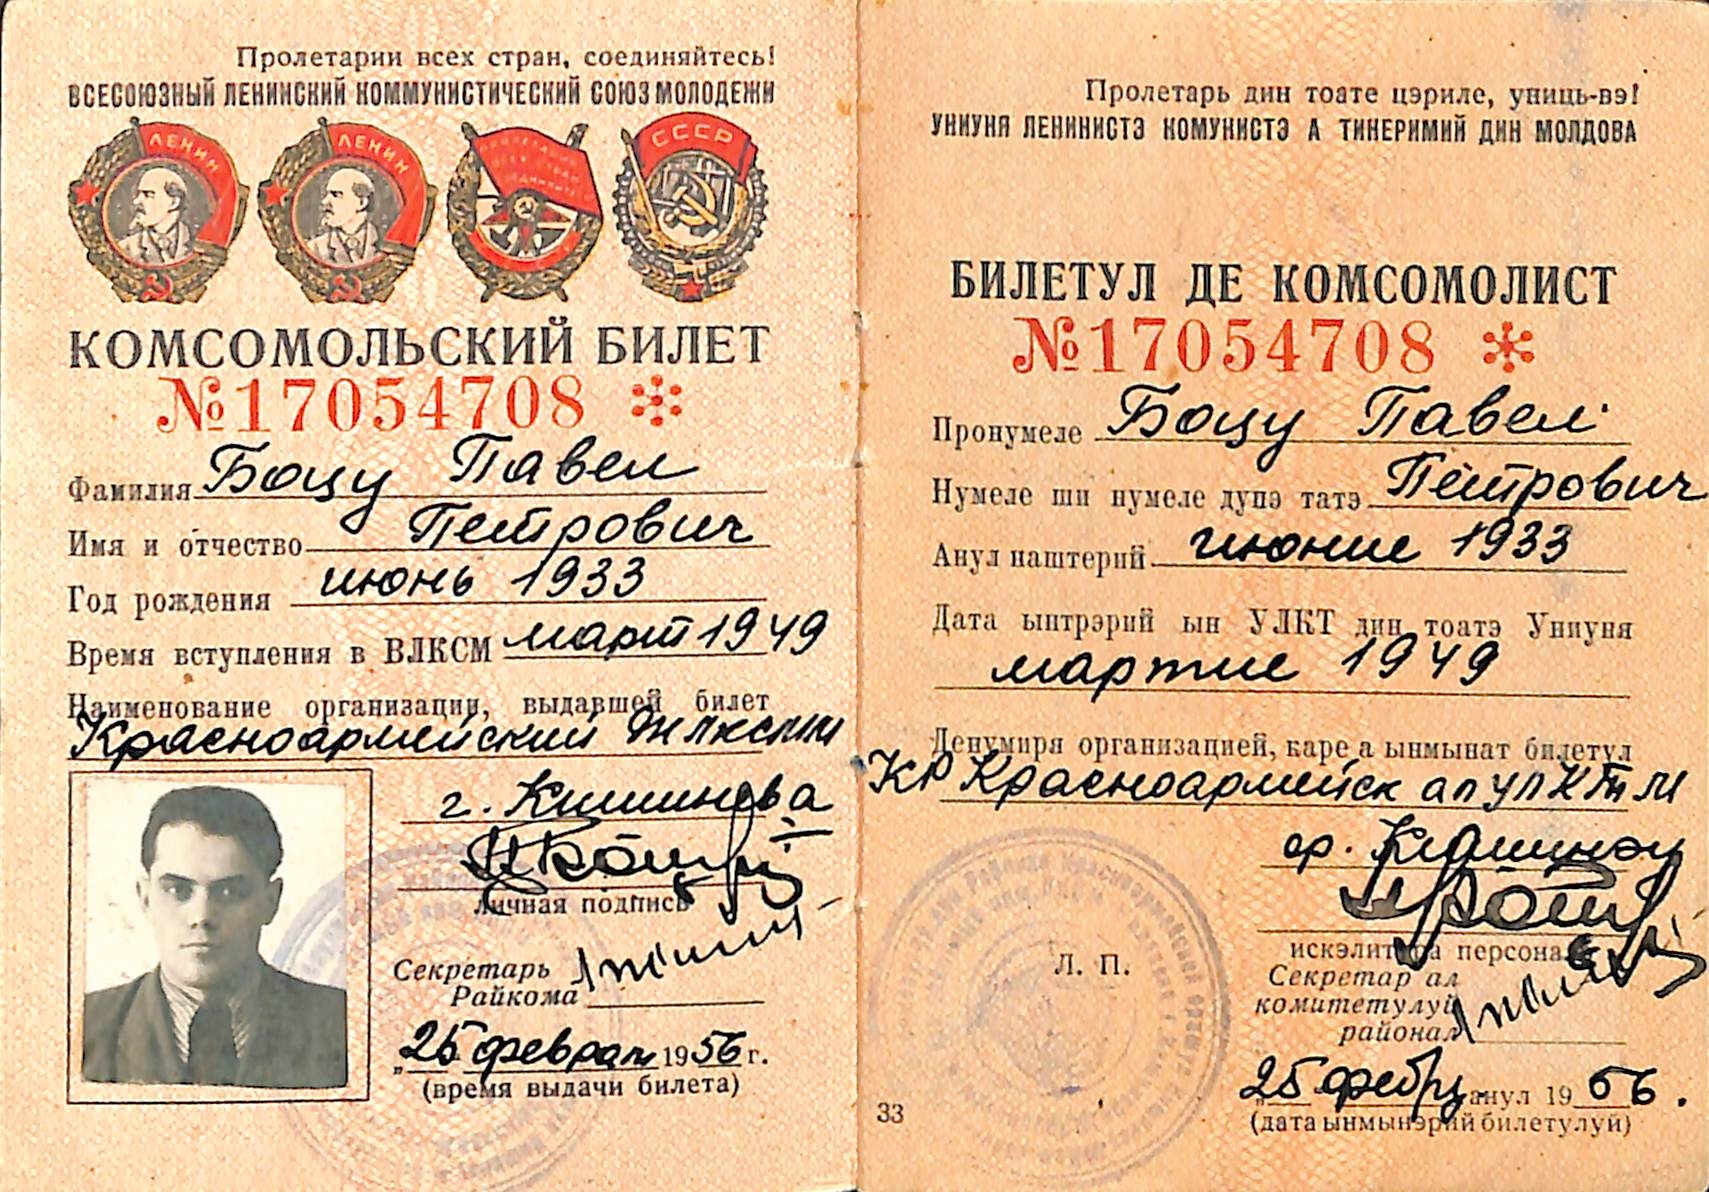 Пролетарии всех стран, соединяйтесь!
ВСЕСОЮЗНЫЙ ЛЕНИНСКИЙ КОММУНИСТИЧЕСКИЙ СОЮЗ МОЛОДЕЖИ
ЛЕНИН
ЛЕНИН
СССР
КОМСОМОЛЬСКИЙ БИЛЕТ
№17054708
Фамилия Боцу Павел
Имя и отчество Петрович
Год рождения июнь 1933
Время вступления в ВЛКСМ март 1949
Наименование организации, выдавшей билет
Красноармейский
г. Кишинева
личная подпись
Секретарь
Райкома
„25 феврал 1956 г.
(время выдачи билета)
Пролетарь дин тоате цэриле, униць-вэ!
УНИУНЯ ЛЕНИНИСТЭ КОМУНИСТЭ А ТИНЕРИМИЙ ДИН МОЛДОВА
БИЛЕТУЛ ДЕ КОМСОМОЛИСТ
№17054708
Пронумеле Боцу Павел
Нумеле ши нумеле дупэ татэ Петрович
Анул наштерий июние 1933
Дата ынтрэрий ын УЛКТ дин тоатэ Униуня
мартие 1949
Денумиря организацией, каре а ынмынат билетул
КР Красноармейск ал УЛКТМ
ор. Кишинэу
искэлитура персоналэ
Секретар ал
комитетулуй
районал
Л. П.
25 фебр. анул 1956.
(дата ынмынэрий билетулуй)
33